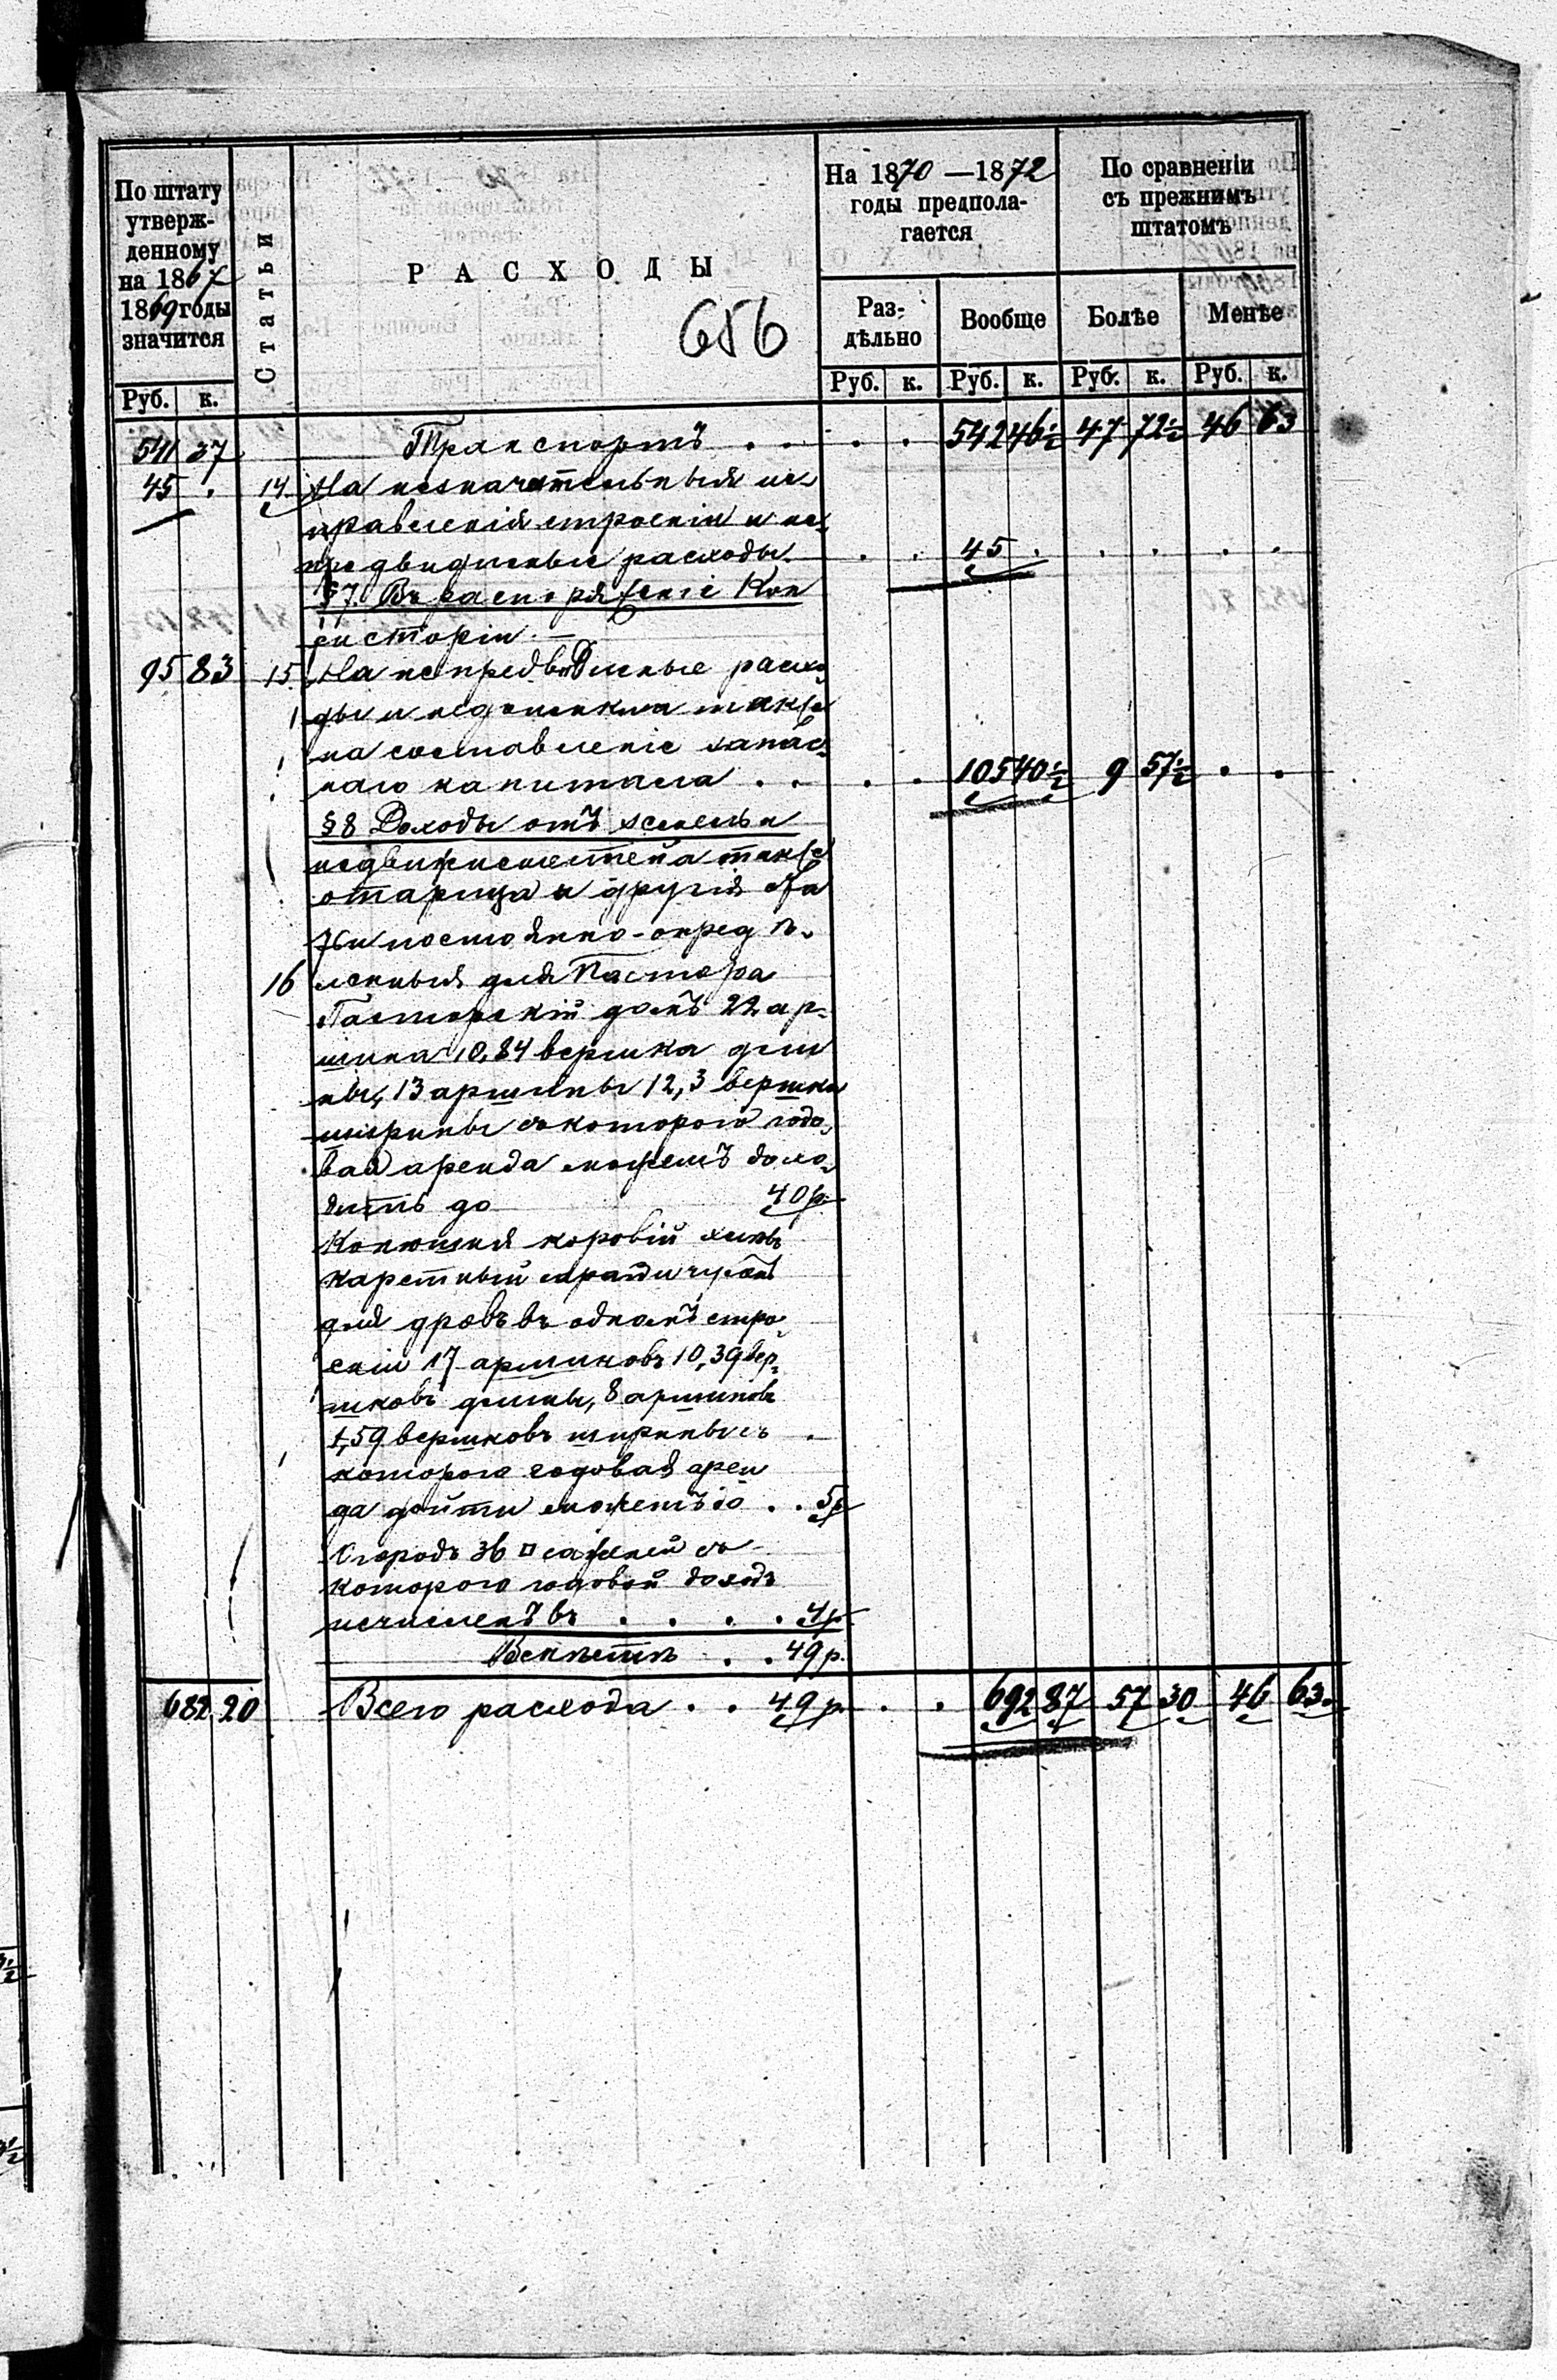 По штату
утверж-
денному
на 1867
1869 годы
значится
Статьи
РАСХОДЫ
656
На 1870 — 1872
годы предпола-
гается
По сравненіи
съ прежнимъ
штатомъ
Раз-
дѣльно
Вообще
Болѣе
Менѣе
Руб. к. Руб. к. Руб. к. Руб. к. Руб. к.
541 37 Транспортъ . . . . 542 46½ 47 72½ 46 63
45 . 14. На незначительныя ис-
правленія строеній и не-
предвидимые расходы . . 45 . . . . .
§ 7. Въ распоряженіе Кон
систоріи. —
95 83 15. На непредвидимые расхо
ды и недоимки а также
на составленіе запас-
наго капитала . . . . 105 40½ 9 57½ . .
§ 8 Доходы отъ земель и
недвижимостей а также
отарица и другія
постоянно-опредѣ-
16 ленныя для Пастора
Пасторскій домъ 22 ар-
шина 10,84 вершка дли
ны, 13 аршины 12,3 вершка
ширины съ котораго годо-
вая аренда можетъ дохо-
дить до 40 р.
Конюшня коровій хлѣвъ
каретный сарай и
для дровъ въ одномъ стро-
еніи 17 аршиновъ 10,39 вер-
шковъ длины, 8 аршиновъ
1,59 вершковъ ширины съ
котораго годовая арен
да дойти можетъ до . . 5 р
Огородъ 36 □ саженей съ
котораго годовой доходъ
исчисленъ въ . . . . 4 р.
Вмѣстѣ . . 49 р.
682 20 Всего расхода . . 49 р. . . 692 87 57 30 46 63.